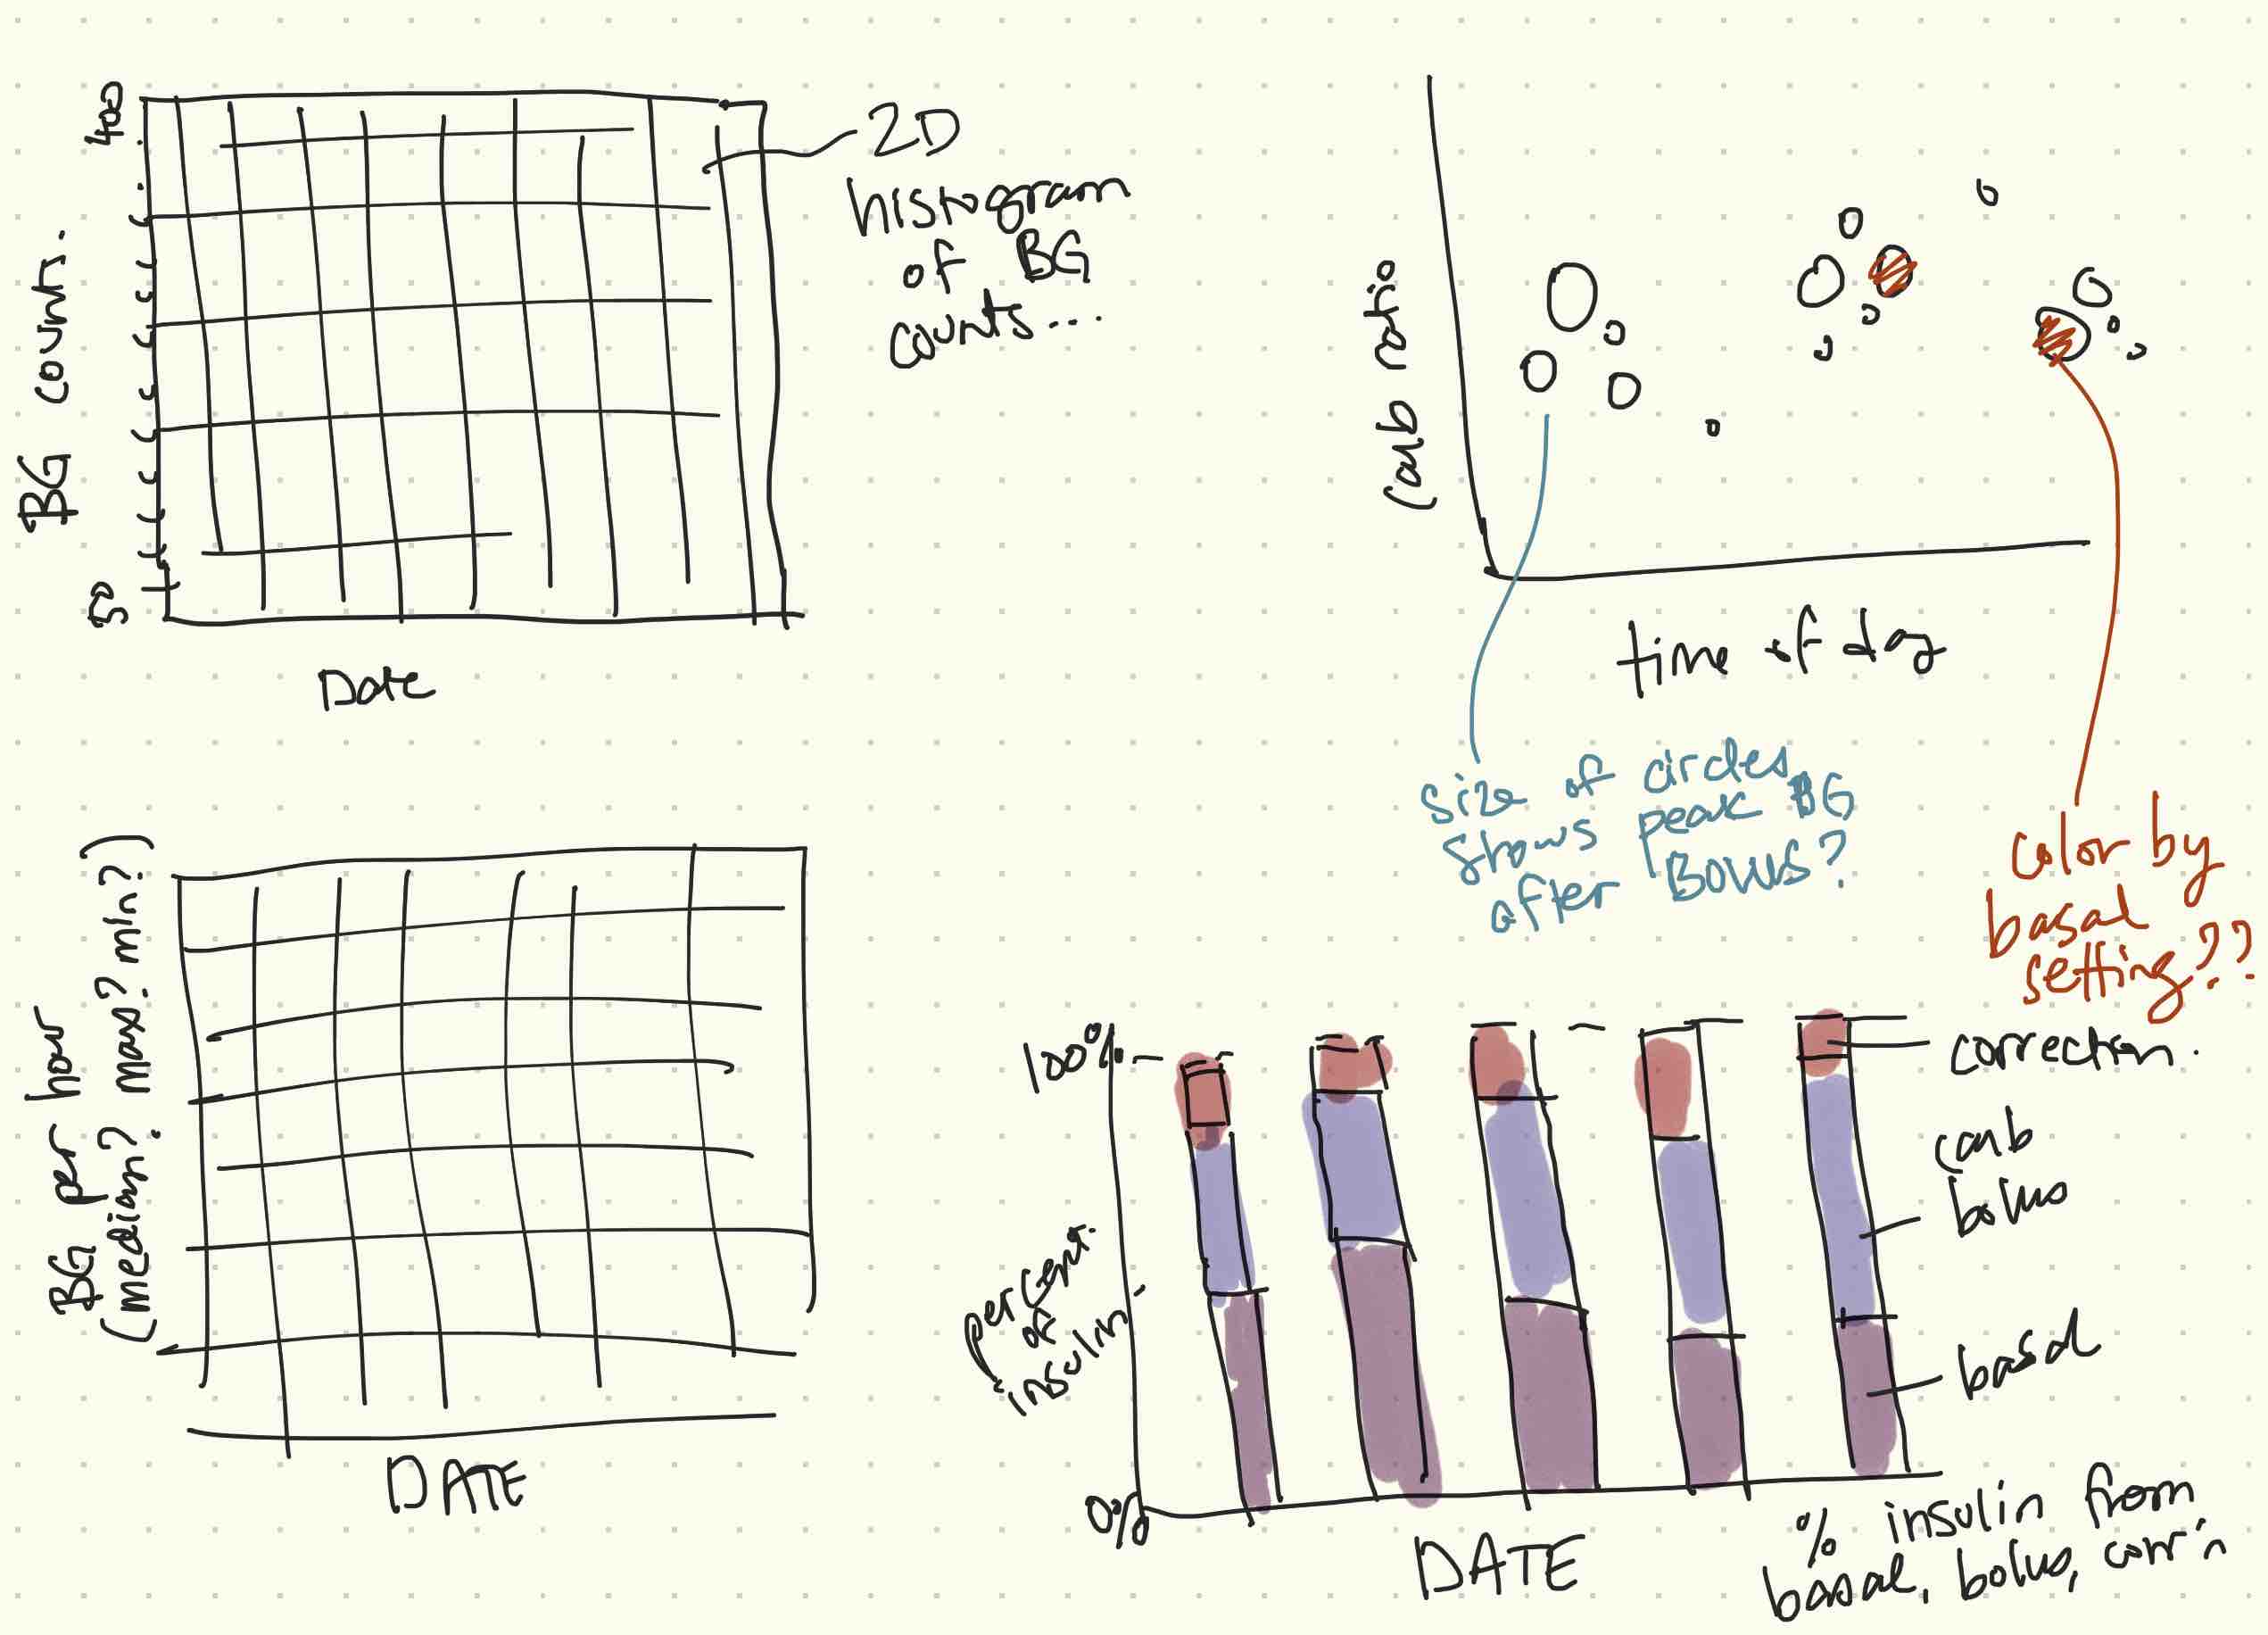 400
BG counts.
50
Date
2D
histogram
of BG
counts...
carb ratio
time of day
size of circles
shows peak BG
after BOLUS?
color by
basal
setting??
BG per hour
(median? max? min?)
DATE
100%
percent
of
insulin
0%
DATE
correction.
carb
bolus
basal
% insulin from
basal, bolus, corr'n